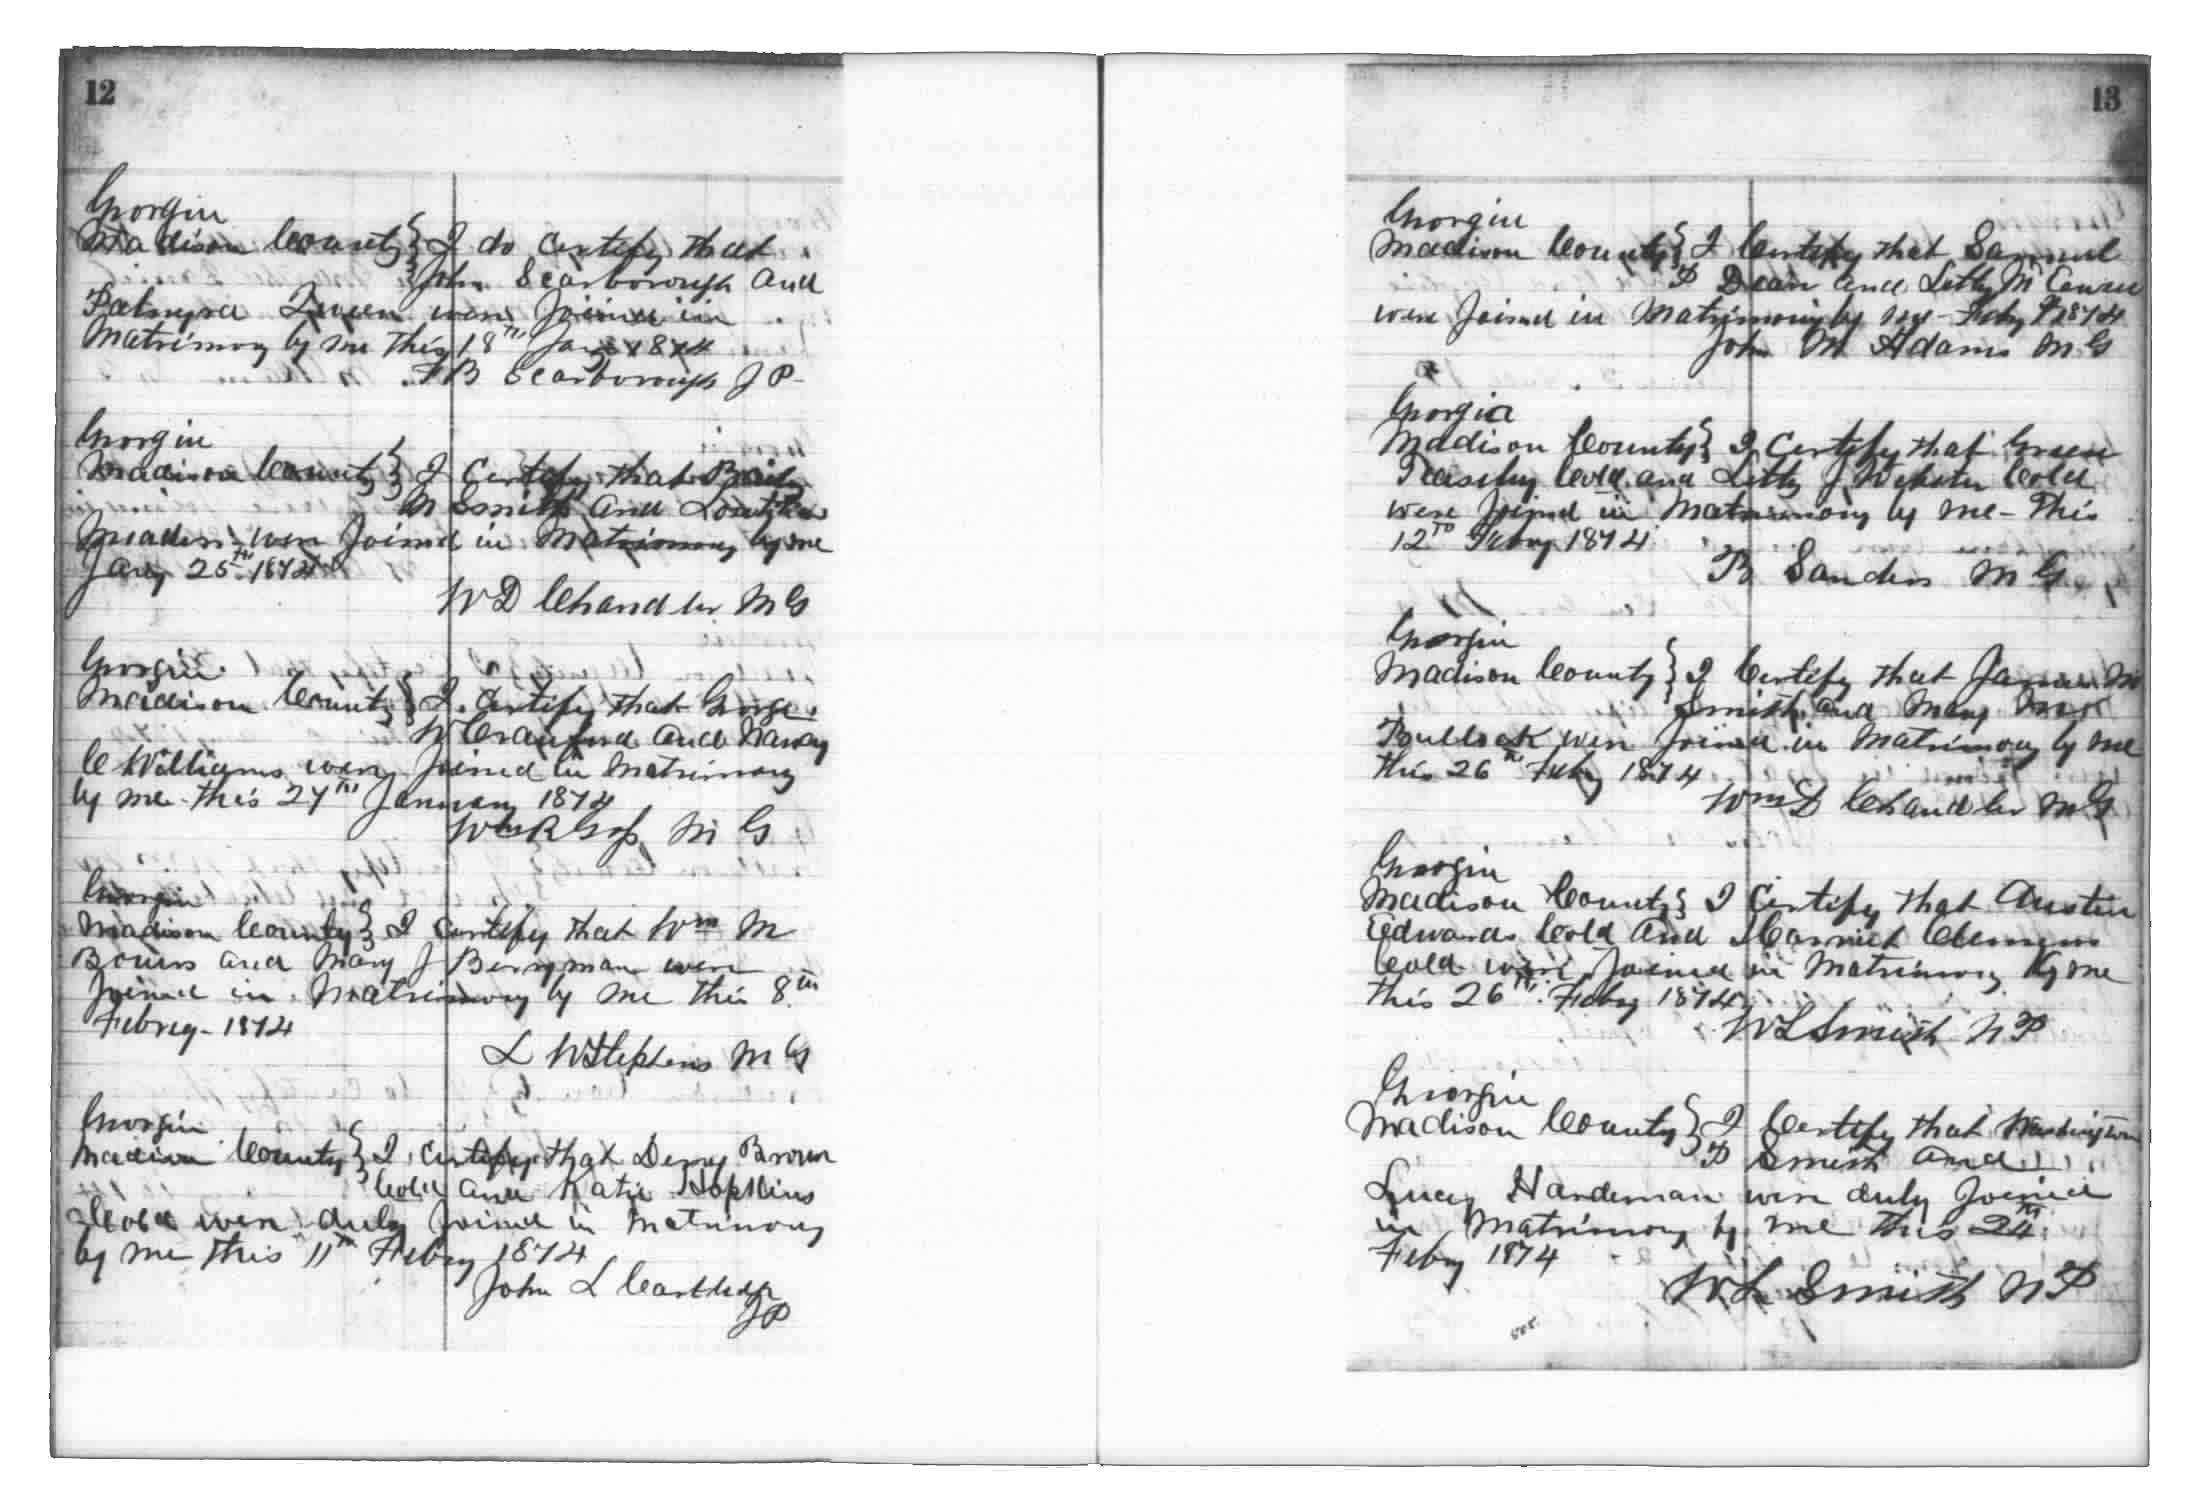 12
Georgia
Madison County } I do certify that
John Scarborough and
Palmyra Queen were Joined in
Matrimony by me this 18th Jany 1874
F B Scarborough J P
Georgia
Madison County } I Certify that
M Smith and
were Joined in Matrimony by me
Jany 25th 1874
W D Chandler M G
Georgia
Madison County } I Certify that George
W Crawford and Nancy
C Williams were Joined in Matrimony
by me this 27th January 1874
Wm R Goss M G
Georgia
Madison County } I Certify that Wm M
Bowers and Mary J Berryman were
Joined in Matrimony by me this 8th
Febry - 1874
L W Stephens M G
Georgia
Madison County } I certify that Derry Brown
Cold and Katie Hopkins
Cold were duly Joined in Matrimony
by me this 11th Febry 1874
John L Cartledge
J P
13
Georgia
Madison County } I Certify that Samuel
P Dean and Letty M
were Joined in Matrimony by me - Feby 1874
John M Adams M G
Georgia
Madison County } I Certify that Green
Teasley Cold and Letty J Webster Cold
were Joined in Matrimony by me - This
12th Febry 1874
B Sanders M G
Georgia
Madison County } I Certify that James M
Smith and Mary
Bullock were Joined in Matrimony by me
this 26th Feby 1874
Wm D Chandler M G
Georgia
Madison County } I Certify that Austin
Edwards Cold and Harriet
Cold were Joined in Matrimony by me
this 26th Febry 1874
W L Smith N P
Georgia
Madison County } I Certify that Washington
P Smith and
Lucy Hardeman were duly Joined
in Matrimony by me this 24th
Febry 1874
W L Smith N P